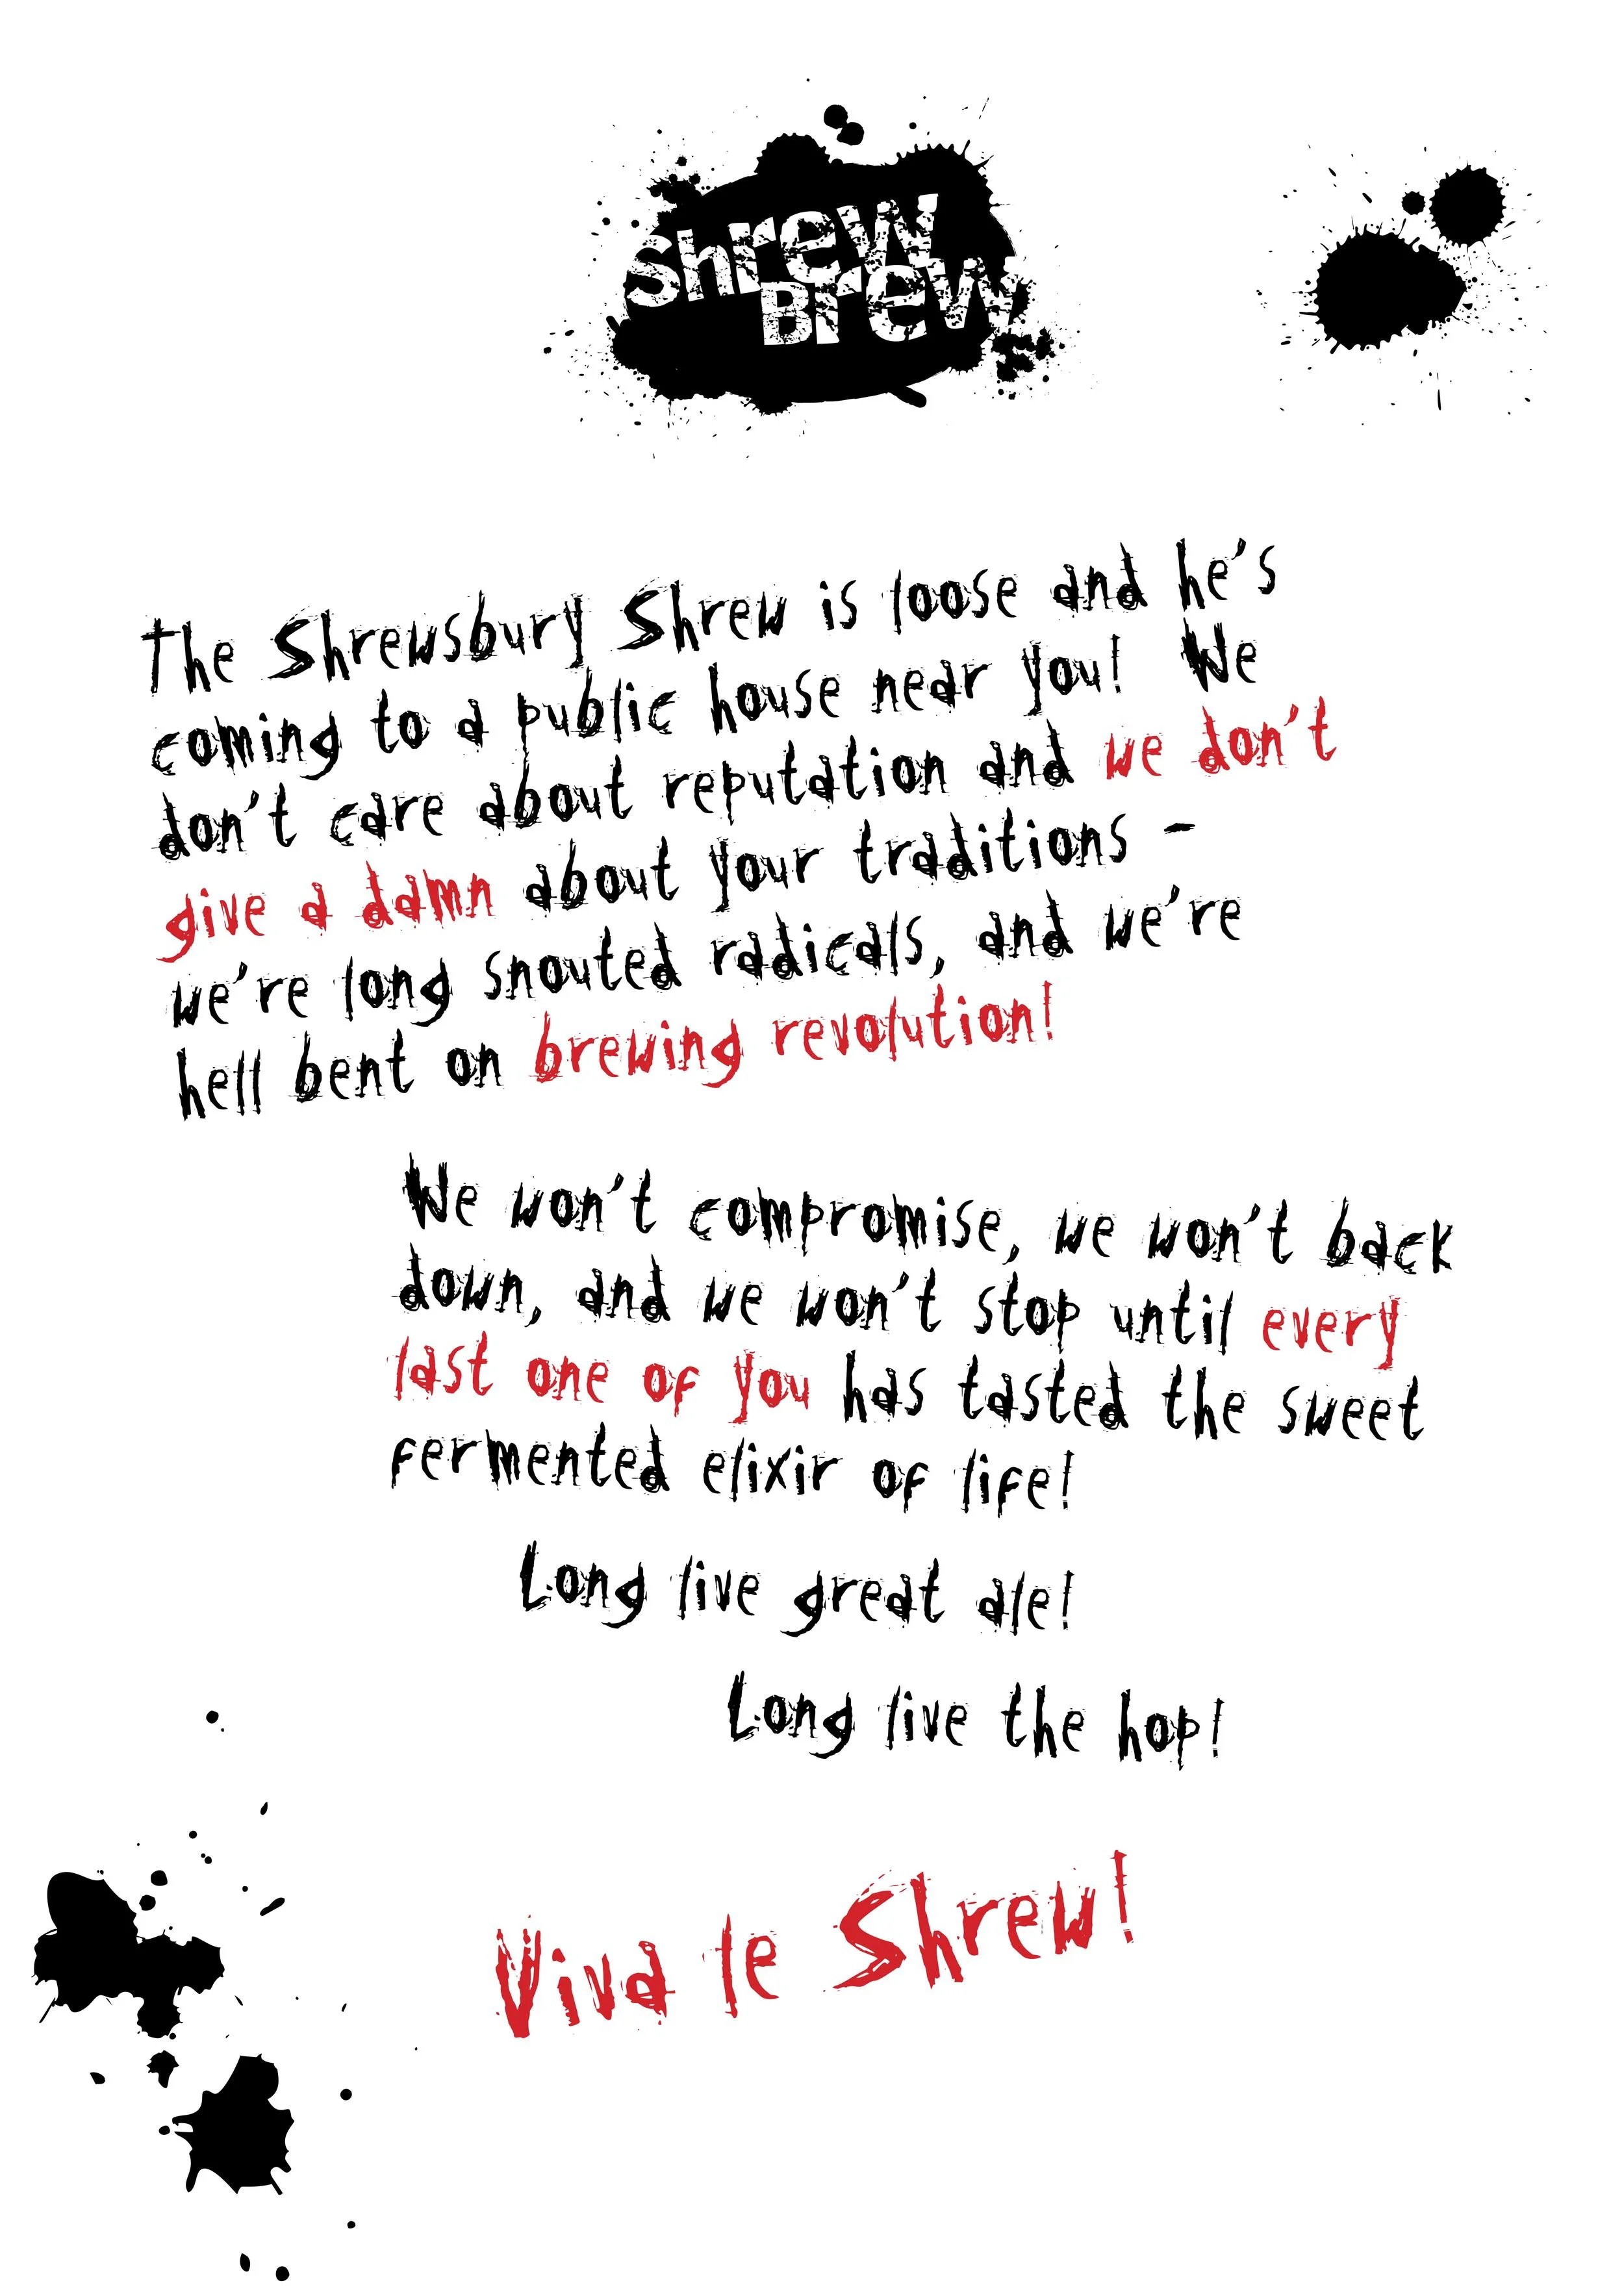 Shrew
Brew
The Shrewsbury Shrew is loose and he's
coming to a public house near you!  We
don't care about reputation and we don't
give a damn about your traditions -
we're long snouted radicals, and we're
hell bent on brewing revolution!
We won't compromise, we won't back
down, and we won't stop until every
last one of you has tasted the sweet
fermented elixir of life!
Long live great ale!
Long live the hop!
Viva le Shrew!